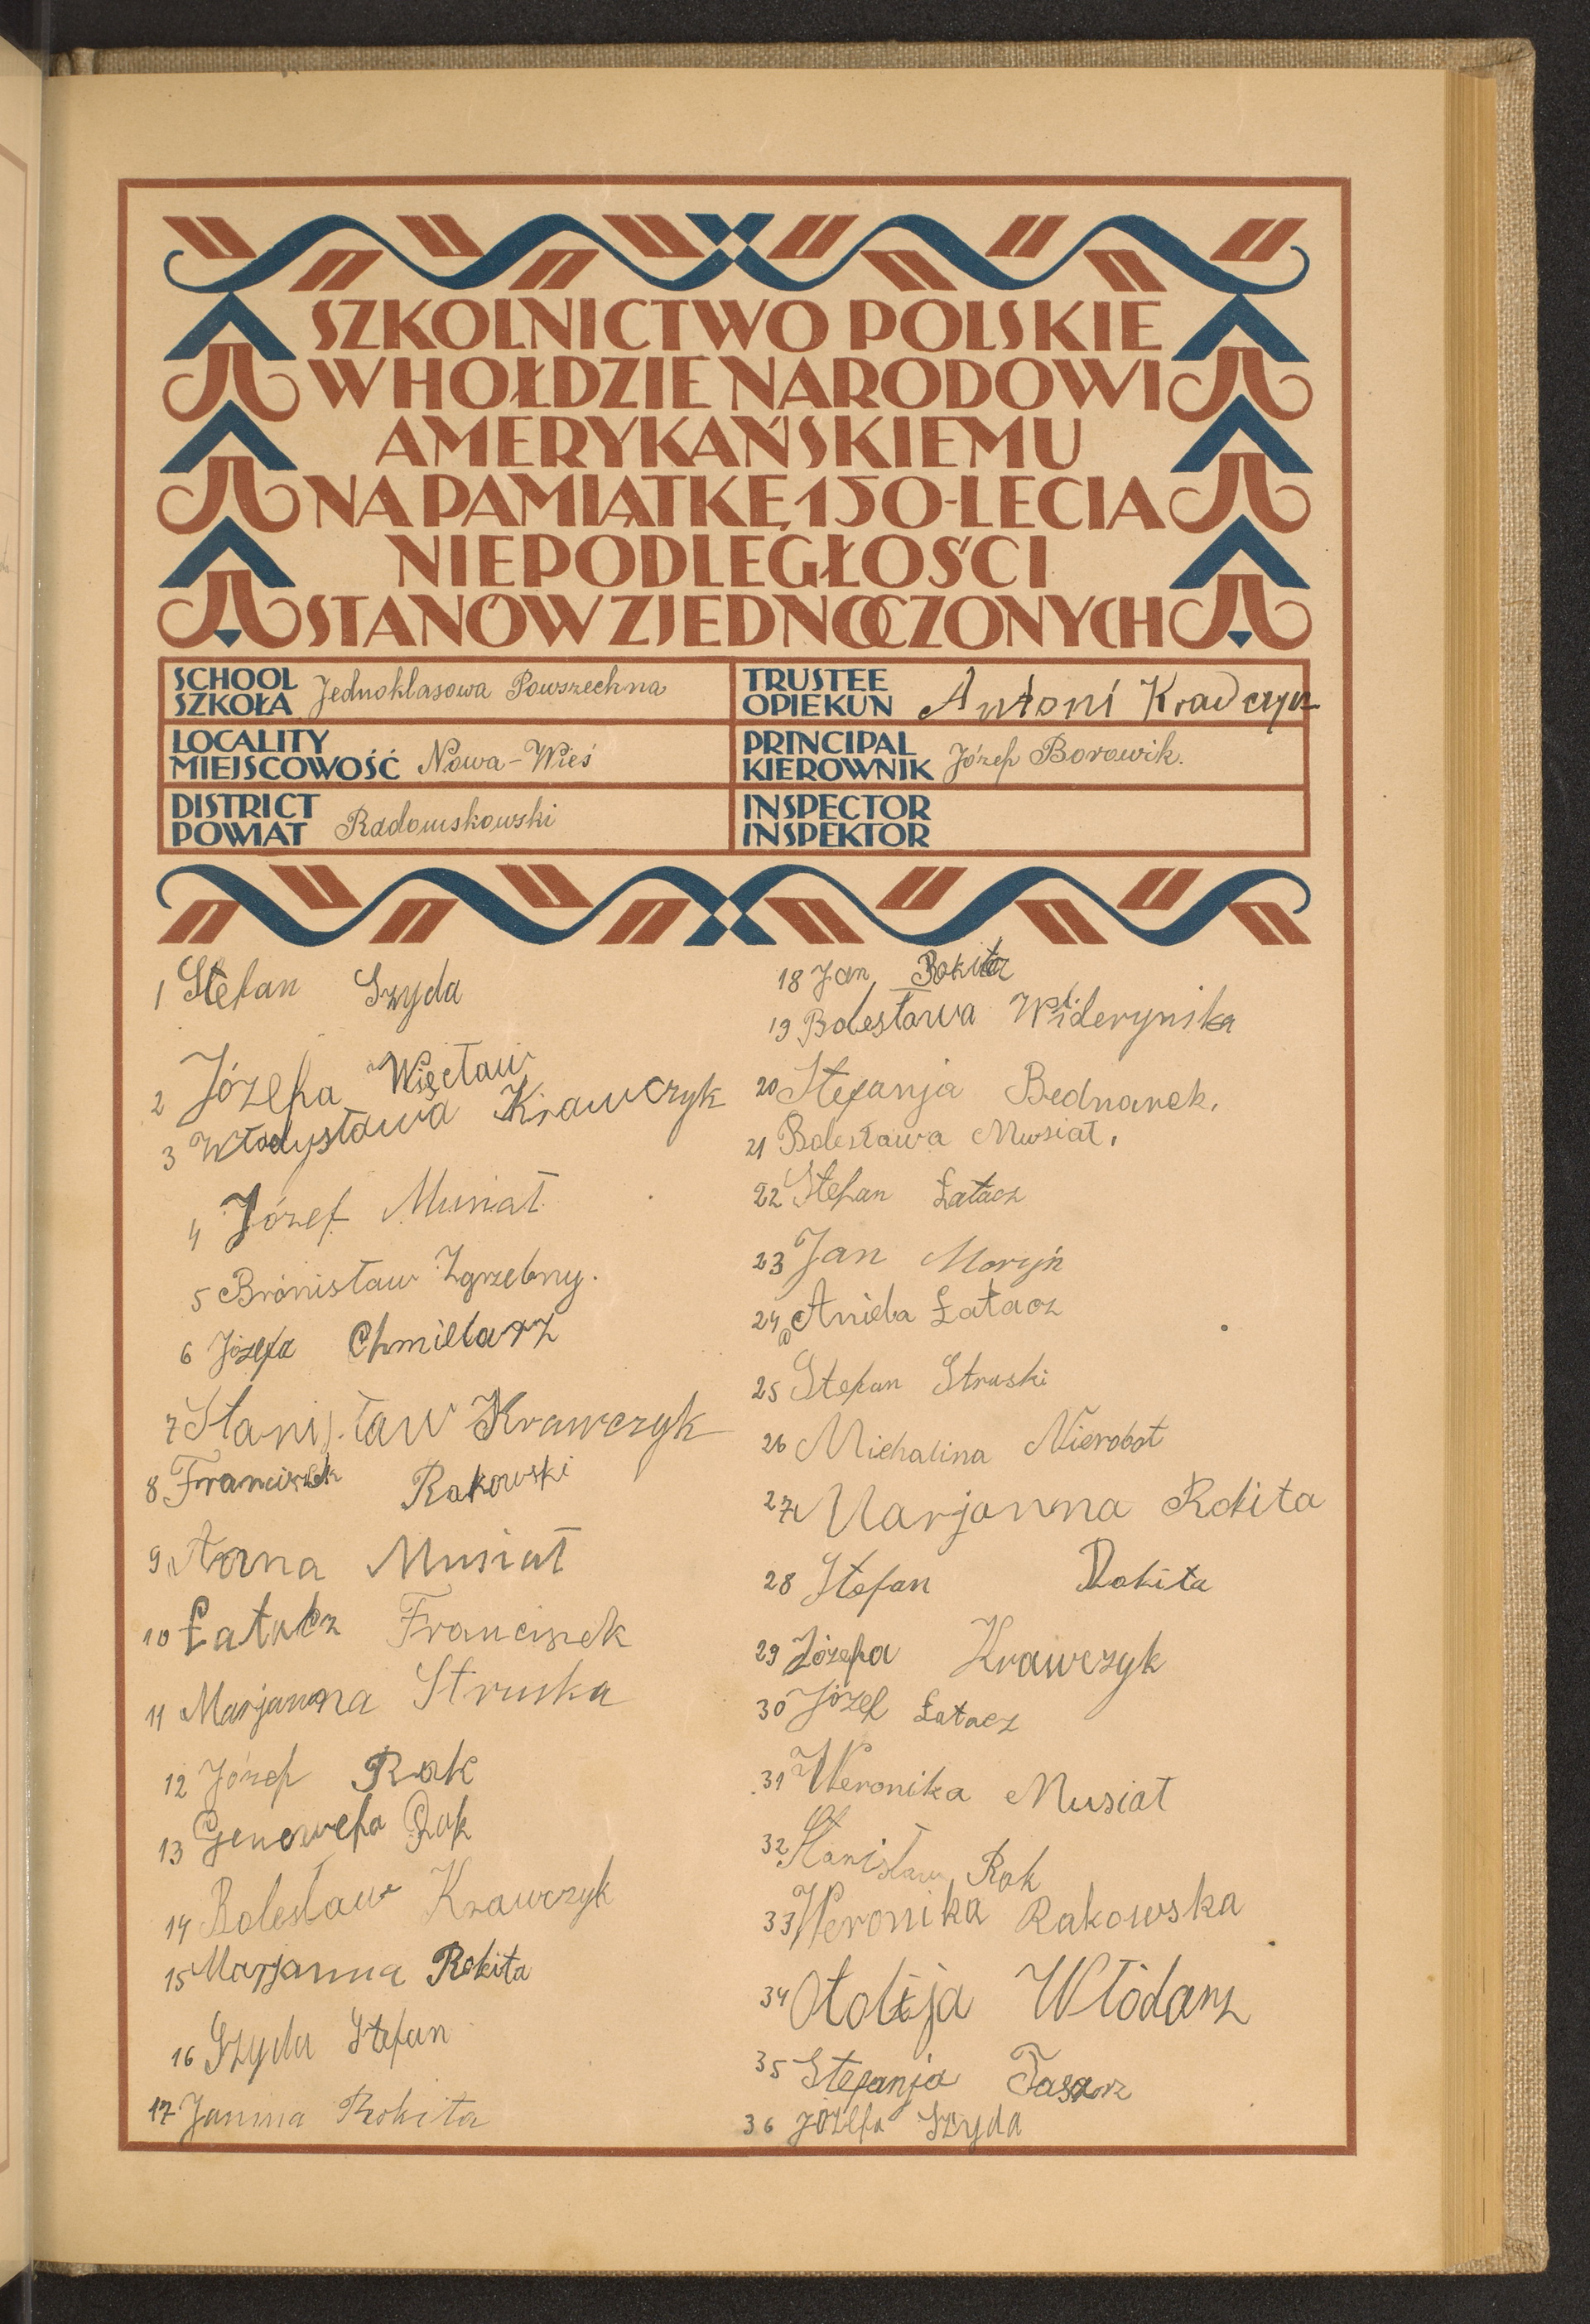 SZKOLNICTWO POLSKIE
W HOŁDZIE NARODOWI
AMERYKAŃSKIEMU
NA PAMIĄTKĘ 150-LECIA
NIEPODLEGŁOŚCI
STANÓW ZJEDNOCZONYCH
SCHOOL
SZKOŁA Jednoklasowa Powszechna
TRUSTEE
OPIEKUN Antoni Krawczyk
LOCALITY
MIEJSCOWOŚĆ Nowa-Wieś
PRINCIPAL
KIEROWNIK Józef Borowik.
DISTRICT
POWIAT Radomskowski
INSPECTOR
INSPEKTOR
1 Stefan Szyda
2 Józefa Więcław
3 Władysława Krawczyk
4 Józef Musiał
5 Bronisław Zgrzebny.
6 Józefa Chmielarz
7 Stanisław Krawczyk
8 Franciszek Rakowski
9 Anna Musiał
10 Łatacz Franciszek
11 Marjanna Struska
12 Józef Rak
13 Genowefa Rak
14 Bolesław Krawczyk
15 Marjanna Rokita
16 Szyda Stefan
17 Janina Rokita
18 Jan Rokita
19 Bolesława
20 Stefanja Bednarek.
21 Bolesława Musiał.
22 Stefan Łatacz
23 Jan Moryń
24 Aniela Łatacz
25 Stefan Struski
26 Michalina Nierobot
27 Marjanna Rokita
28 Stefan Rokita
29 Józefa Krawczyk
30 Józef Łatacz
31 Weronika Musiał
32 Stanisław Rak
33 Weronika Rakowska
34 Otolija Włódarz
35 Stefanja Tasarz
36 Józefa Szyda